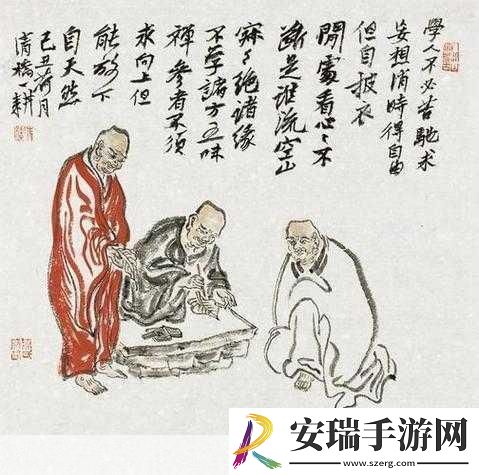 學人不必苦馳求
妄相消時得自由
但自披衣
閒處看心々不
斷是誰流空山
寂々絕諸緣
不學諸方五味
禪參者不須
求向上但
能放下
自天然
己丑荷月
清橋一耕
安瑞手游网
www.szerg.com